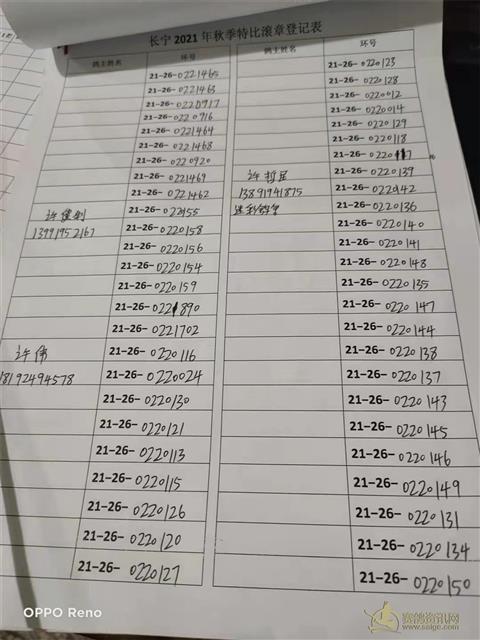 长宁 2021 年秋季特比滚章登记表
鸽主姓名 环号 鸽主姓名 环号
21-26-0221465
21-26-0221463
21-26-0220917
21-26-0220916
21-26-0221464
21-26-0221468
21-26-0220920
21-26-0221469
21-26-0221462
21-26-022155
13991952167 21-26-0220158
21-26-0220156
21-26-0220154
21-26-0220159
21-26-0221890
21-26-0221702
许伟 21-26-0220116
18192494578 21-26-0220024
21-26-0220130
21-26-0220121
21-26-0220113
21-26-0220115
21-26-0220126
21-26-0220120
21-26-0220127
21-26-0220123
21-26-0220128
21-26-0220012
21-26-0220014
21-26-0220129
21-26-0220118
21-26-0220117
许哲民 21-26-0220139
13891941875 21-26-0220142
21-26-0220136
21-26-0220140
21-26-0220141
21-26-0220148
21-26-0220135
21-26-0220147
21-26-0220144
21-26-0220138
21-26-0220137
21-26-0220143
21-26-0220145
21-26-0220146
21-26-0220149
21-26-0220131
21-26-0220134
21-26-0220150
OPPO Reno
赛鸽资讯网
www.saige.com